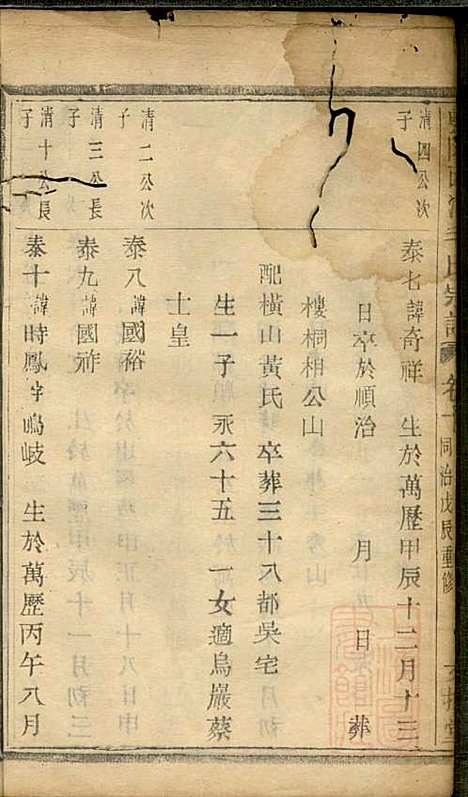 氏宗譜 卷一 同治戊辰重修
清四公次子
泰七諱奇祥 生於萬歷甲辰十二月十三
日卒於順治 月 日 葬
樓桐相公山
配橫山黃氏 卒葬三十八都吳宅
生一子 永六十五 一女適烏巖蔡
士皇
清二公次子
泰八諱國裕
清三公長子
泰九諱國祚
清十公長子
泰十諱時鳳字鳴岐 生於萬歷丙午八月